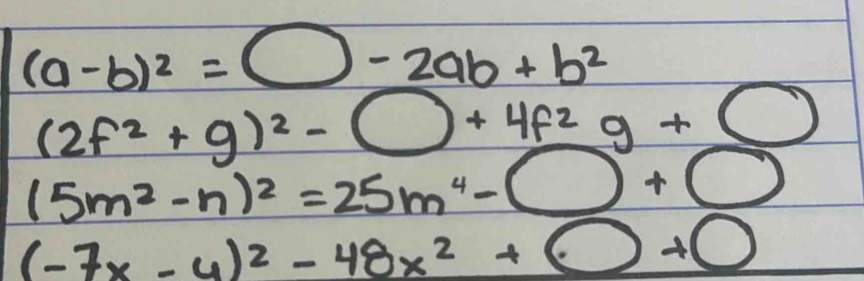 (a-b)² = ◯ - 2ab + b²
(2f² + g)² - ◯ + 4f² g + ◯
(5m² - n)² = 25m⁴ - ◯ + ◯
(-7x - y)² - 48x² + ◯ + ◯